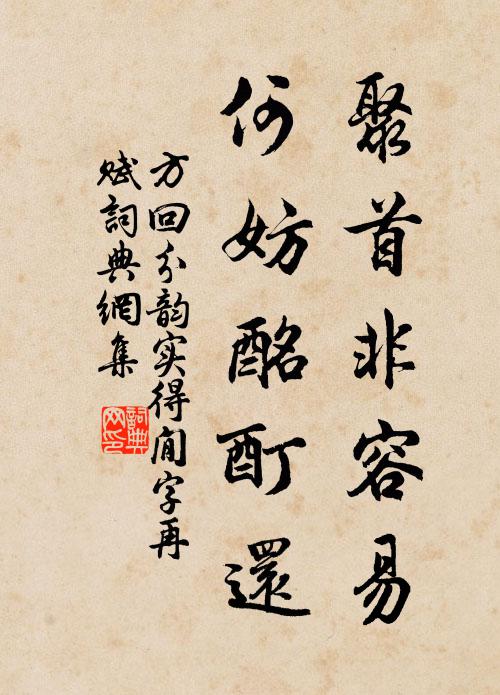 聚首非容易
何妨酩酊還
方回分韵实得閒字再
赋詞典網集
詞典
网印